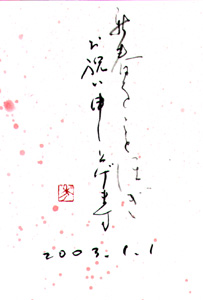 新春をことほぎ
お祝い申し上げます
2003.1.1